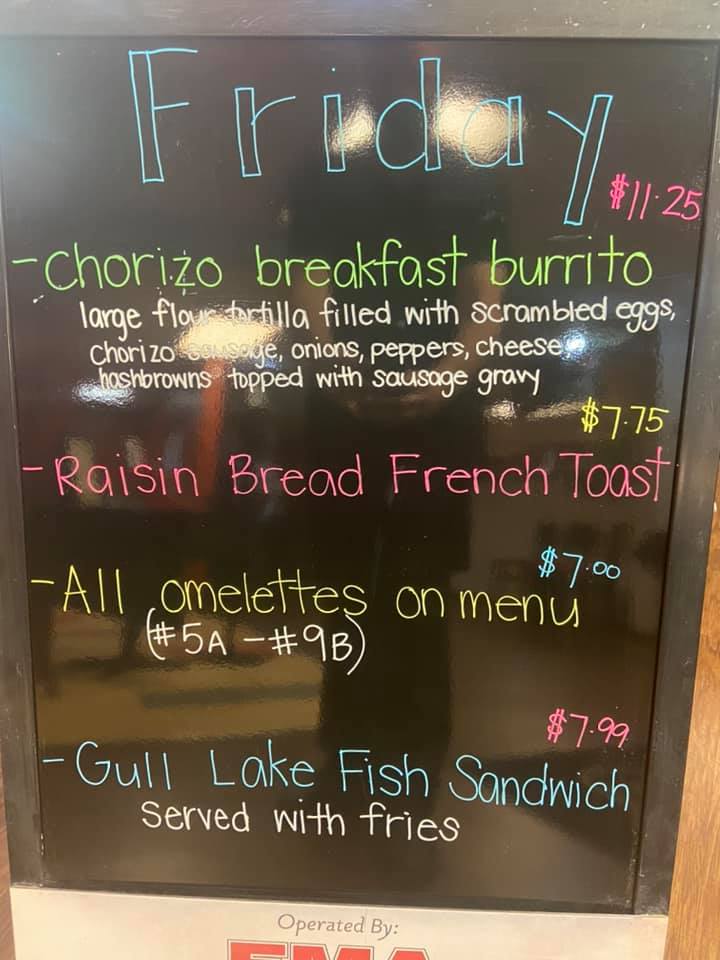 Friday
$11.25
-Chorizo breakfast burrito
large flour tortilla filled with scrambled eggs,
Chorizo sausage, onions, peppers, cheese
hashbrowns topped with sausage gravy
$7.75
-Raisin Bread French Toast
$7.00
-All omelettes on menu
(#5A -#9B)
$7.99
-Gull Lake Fish Sandwich
Served with fries
Operated By: